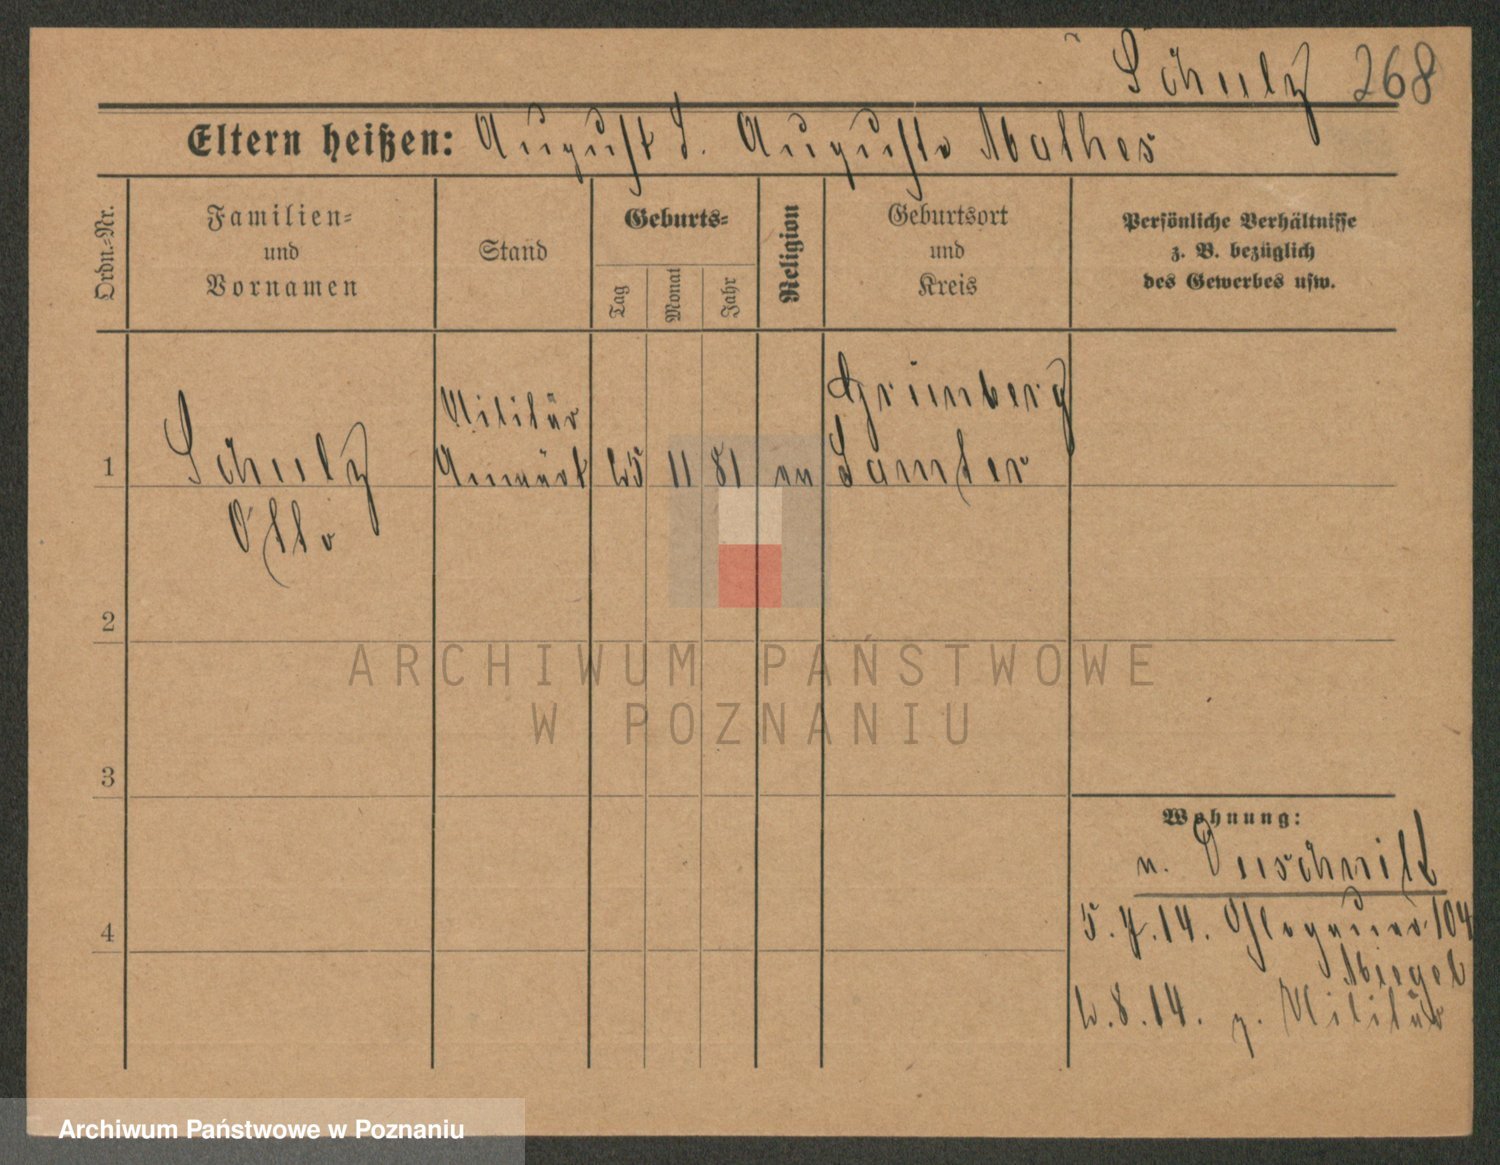 Schulz 268
Eltern heißen: August S. Auguste Mathes
Ordn.-Nr.
Familien-
und
Vornamen
Stand
Geburts-
Tag
Monat
Jahr
Religion
Geburtsort
und
Kreis
Persönliche Verhältnisse
z. B. bezüglich
des Gewerbes usw.
1
Schulz
Otto
Militär
Anwärt
25 11 81 ev
Grünberg
Samter
2
3
4
Wohnung:
n. Duschnik
5. 7. 14. Glogauer 104
Miegel
2. 8. 14. z. Militär
ARCHIWUM PAŃSTWOWE
W POZNANIU
Archiwum Państwowe w Poznaniu